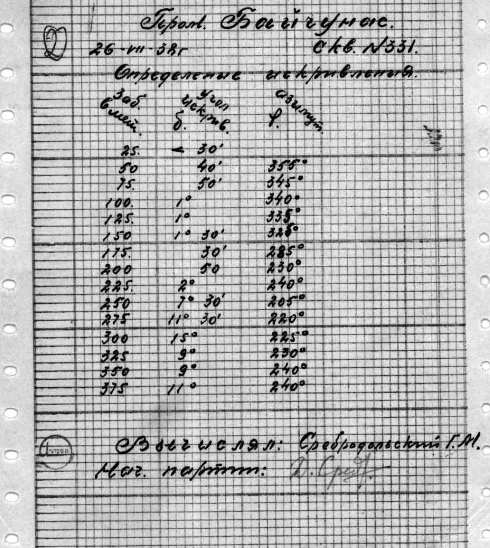 2
Пром. Байчунас.
26-VII-38г Скв. N331.
Определение искривления.
Заб. в мет. Угол искрив. δ. азимут. φ.
25. – 30'
50 40' 355°
75. 50' 345°
100. 1° 340°
125. 1° 335°
150 1° 30' 325°
175. 30' 285°
200 50 230°
225. 2° 240°
250 7° 30' 205°
275 11° 30' 220°
300 15° 225°
325 9° 230°
350 9° 240°
375 11° 240°
Вычислял: Сребродольский Г.М.
Нач. партии: